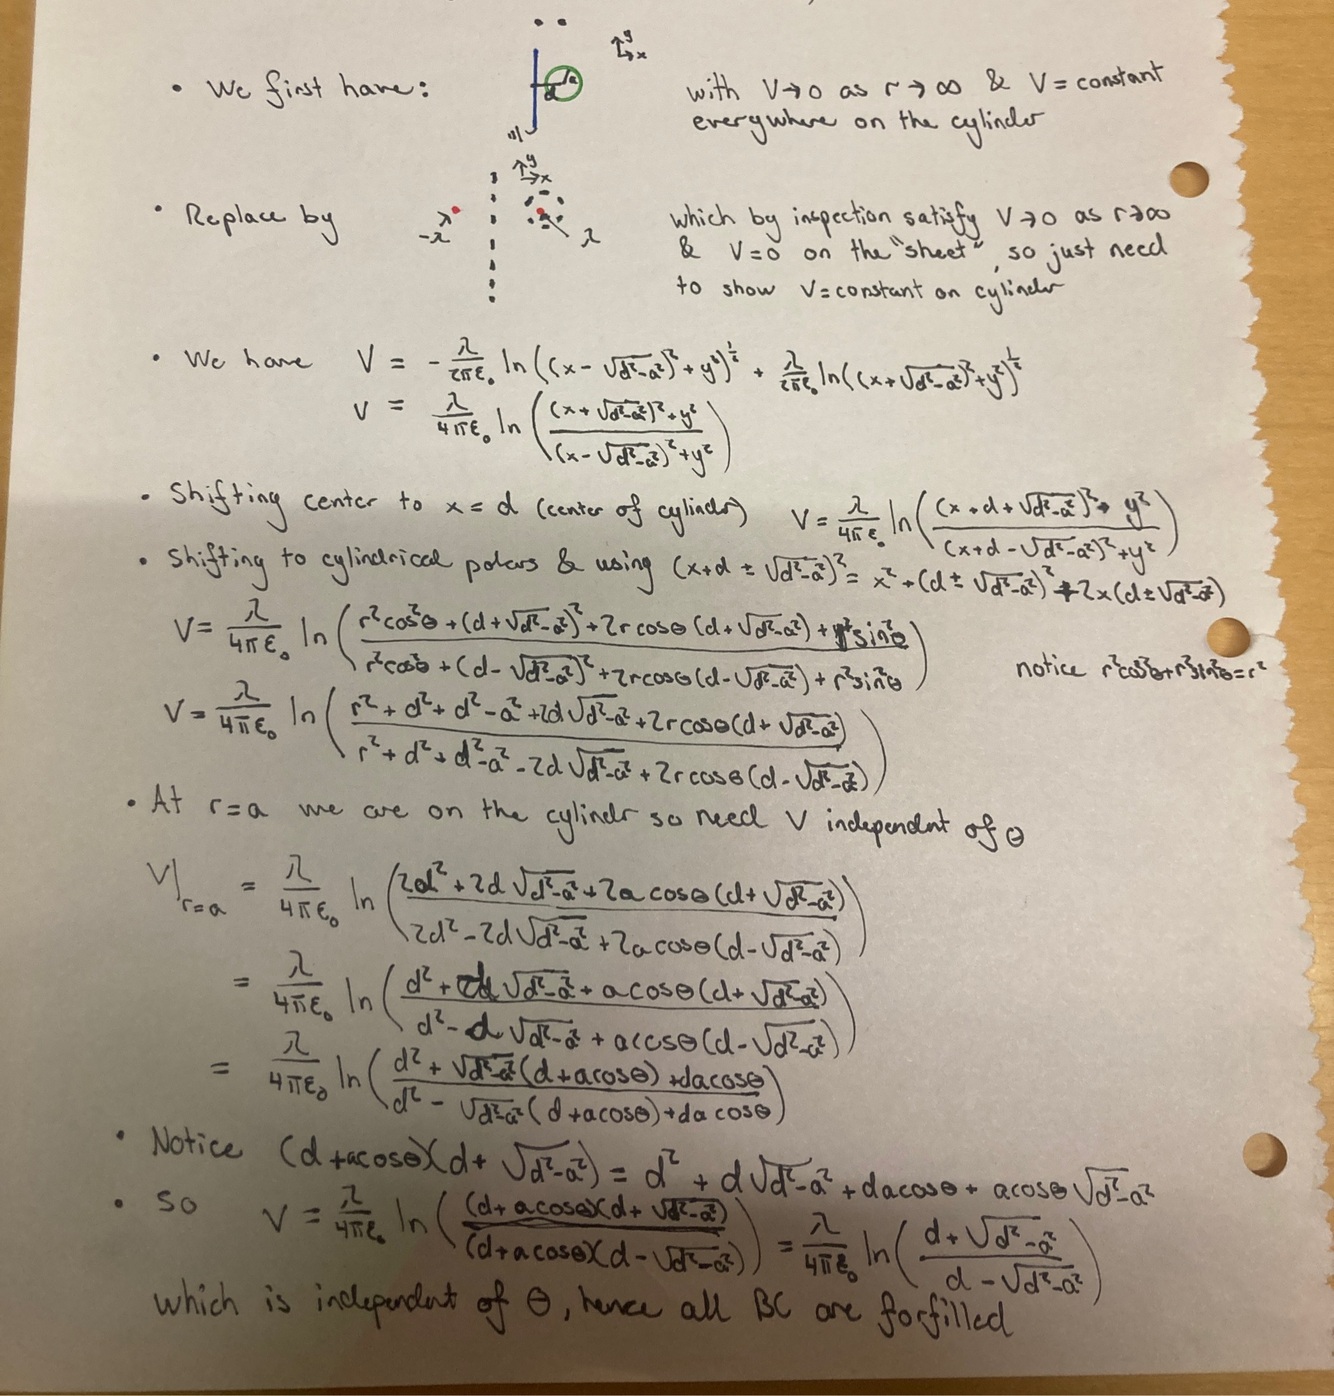 • We first have:
d a
y x
with V→0 as r→∞ & V = constant
everywhere on the cylinder
• Replace by
y x
-λ
λ
which by inspection satisfy V→0 as r→∞
& V=0 on the "sheet", so just need
to show V=constant on cylinder
• We have V = -λ/2πε₀ ln((x-√(d²-a²))²+y²)^½ + λ/2πε₀ ln((x+√(d²-a²))²+y²)^½
V = λ/4πε₀ ln(((x+√(d²-a²))²+y²)/((x-√(d²-a²))²+y²))
• Shifting center to x = d (center of cylinder) V = λ/4πε₀ ln(((x+d+√(d²-a²))²+y²)/((x+d-√(d²-a²))²+y²))
• Shifting to cylindrical polars & using (x+d±√(d²-a²))² = x²+(d±√(d²-a²))²+2x(d±√(d²-a²))
V = λ/4πε₀ ln((r²cos²θ+(d+√(d²-a²))²+2rcosθ(d+√(d²-a²))+r²sin²θ)/(r²cos²θ+(d-√(d²-a²))²+2rcosθ(d-√(d²-a²))+r²sin²θ))
notice r²cos²θ+r²sin²θ=r²
V = λ/4πε₀ ln((r²+d²+d²-a²+2d√(d²-a²)+2rcosθ(d+√(d²-a²)))/(r²+d²+d²-a²-2d√(d²-a²)+2rcosθ(d-√(d²-a²))))
• At r=a we are on the cylindr so need V independent of θ
V|r=a = λ/4πε₀ ln((2d²+2d√(d²-a²)+2acosθ(d+√(d²-a²)))/(2d²-2d√(d²-a²)+2acosθ(d-√(d²-a²))))
= λ/4πε₀ ln((d²+d√(d²-a²)+acosθ(d+√(d²-a²)))/(d²-d√(d²-a²)+acosθ(d-√(d²-a²))))
= λ/4πε₀ ln((d²+√(d²-a²)(d+acosθ)+dacosθ)/(d²-√(d²-a²)(d+acosθ)+dacosθ))
• Notice (d+acosθ)(d+√(d²-a²)) = d²+d√(d²-a²)+dacosθ+acosθ√(d²-a²)
• So V = λ/4πε₀ ln(((d+acosθ)(d+√(d²-a²)))/((d+acosθ)(d-√(d²-a²)))) = λ/4πε₀ ln((d+√(d²-a²))/(d-√(d²-a²)))
which is independent of θ, hence all BC are forfilled